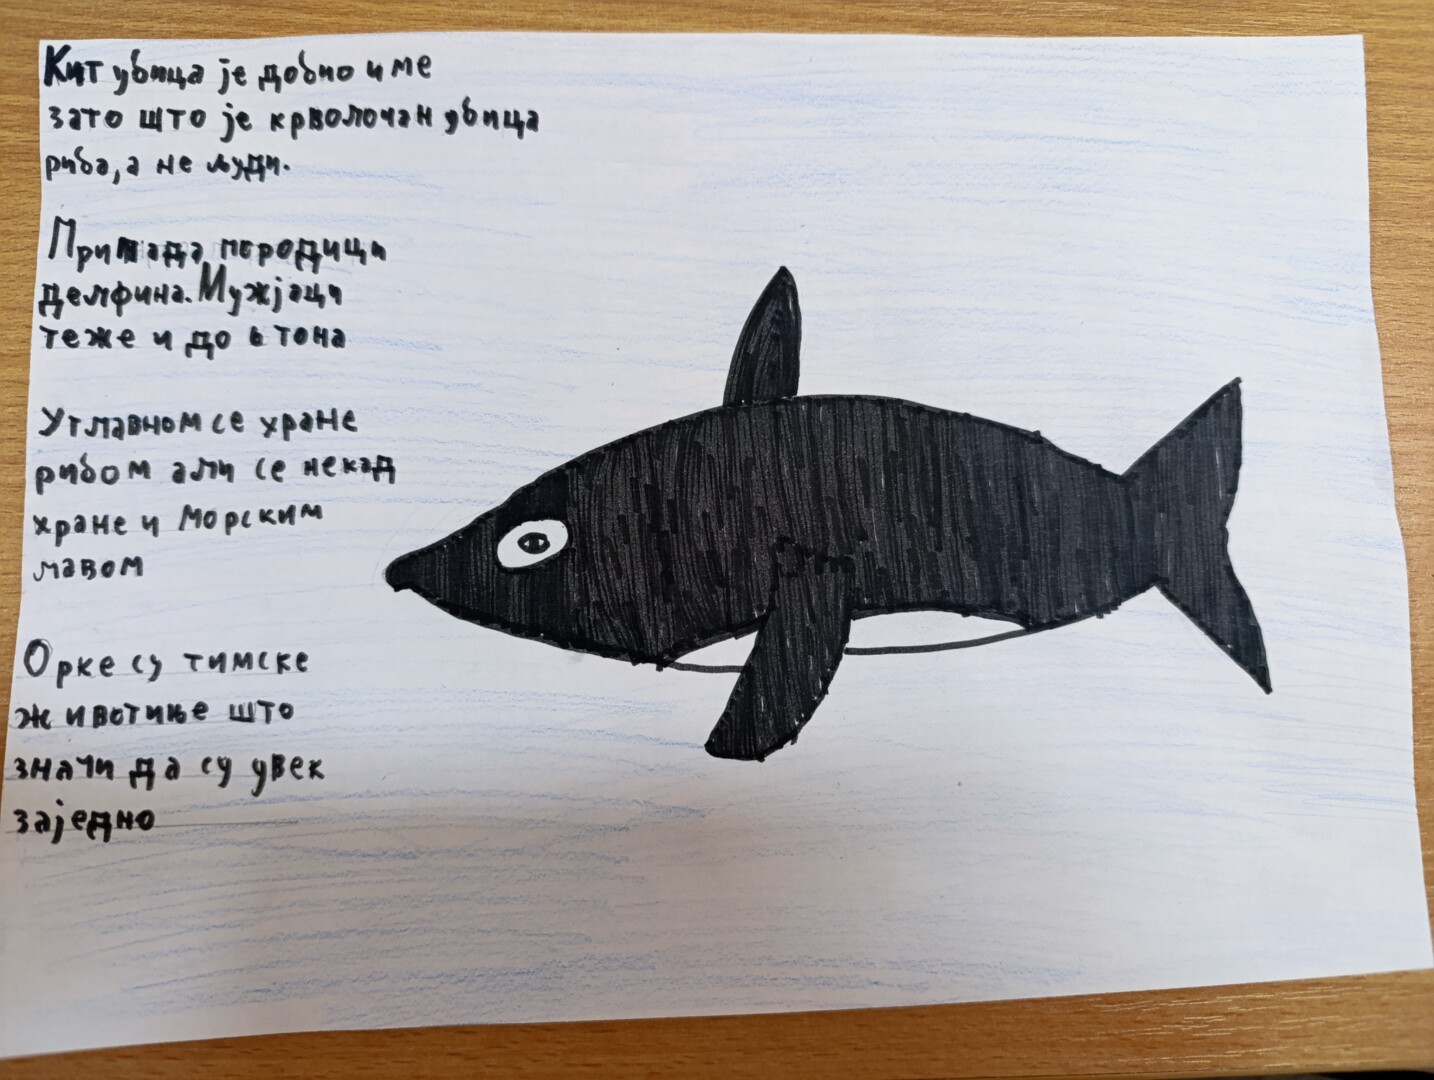 Кит убица је добио име
зато што је крволочан убица
риба, а не људи.
Припада породици
делфина. Мужјаци
теже и до 6 тона
Углавном се хране
рибом али се некад
хране и морским
лавом
Орке су тимске
животиње што
значи да су увек
заједно